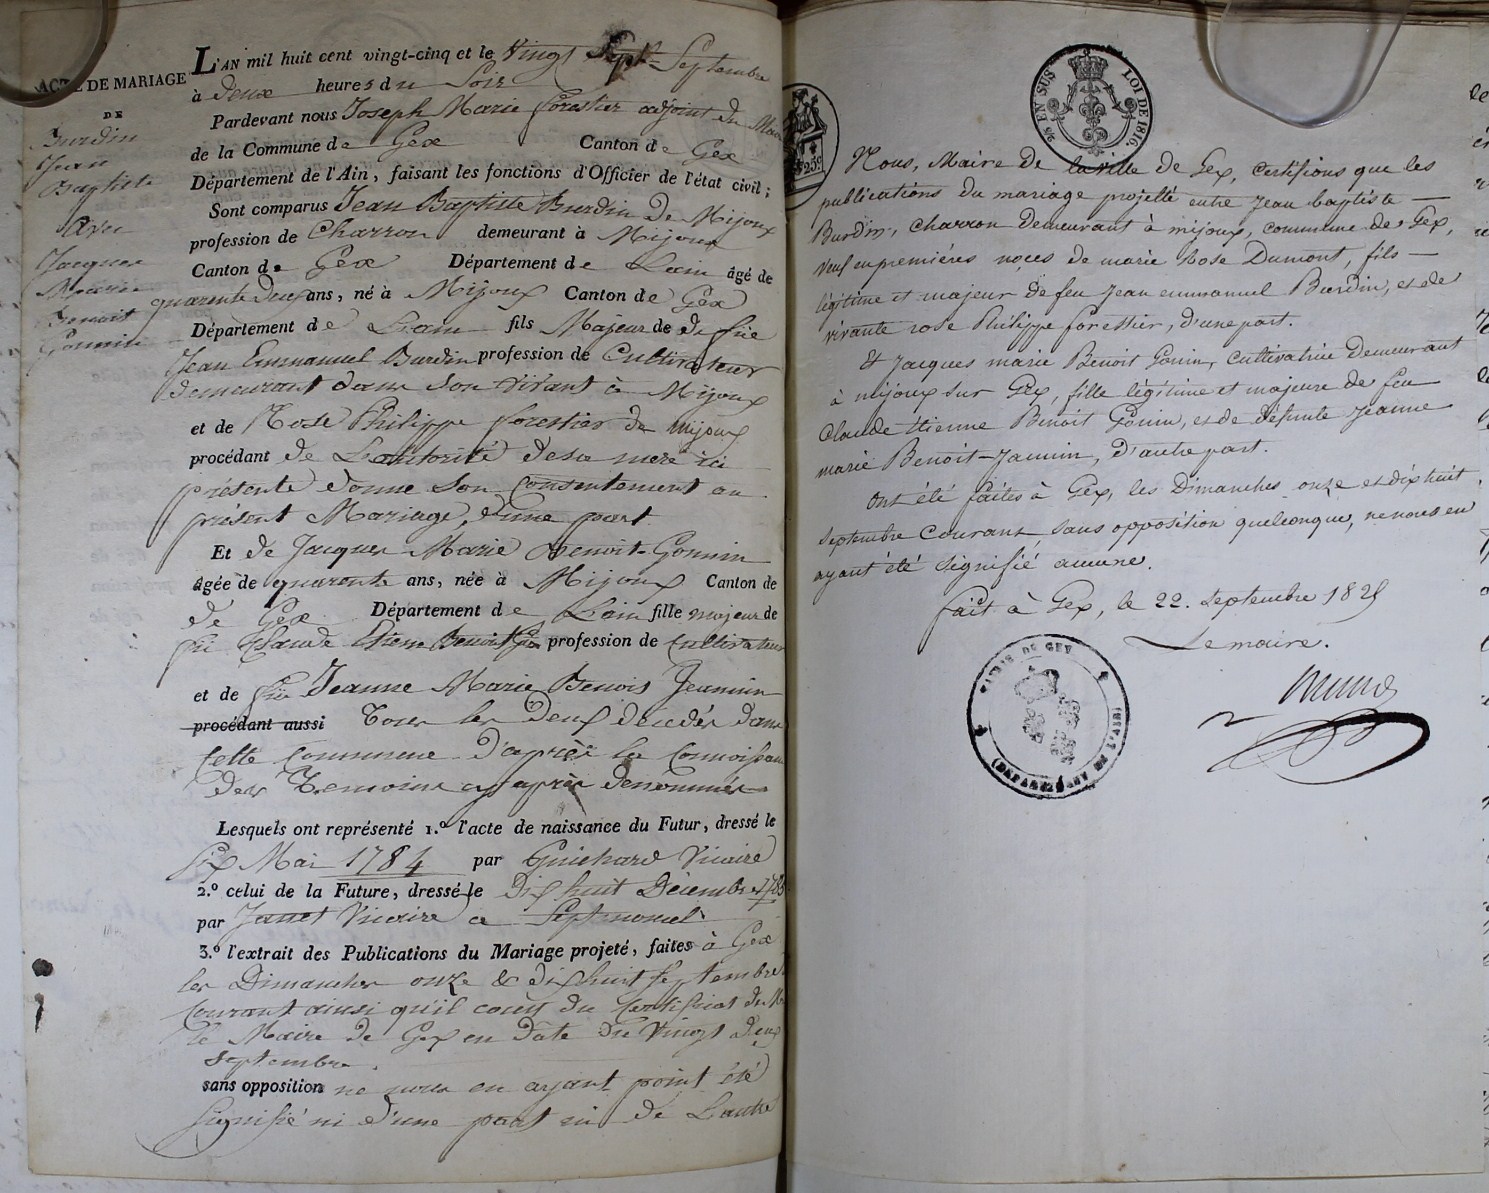 ACTE DE MARIAGE
DE
Burdin
Jean
Baptiste
Avec
Jacques
Marie
Benoit
Gonnin
L'AN mil huit cent vingt-cinq et le Vingt Sept Septembre
à deux heures du Soir
Pardevant nous Joseph Marie forestier adjoint du Maire
de la Commune de Gex Canton de Gex
Département de l'Ain, faisant les fonctions d'Officier de l'état civil;
Sont comparus Jean Baptiste Burdin De Mijoux
profession de Charron demeurant à Mijoux
Canton de Gex Département de Lain âgé de
quarente deux ans, né à Mijoux Canton de Gex
Département de Lain fils Majeur de de füe
Jean Emmanuel Burdin profession de Cultivateur
demeurant dans Son vivant à Mijoux
et de Rose Philippe forestier de Mijoux
procédant de Lautorité desa mere ici
présente donne Son Consentement au
présent Mariage, d'une part
Et de Jacques Marie Benoit-Gonnin
âgée de quarente ans, née à Mijoux Canton de
de Gex Département de Lain fille majeur de
fü Claude Etiene Benoit profession de Cultivateur
et de füe Jeanne Marie Benois Jeannin
procédant aussi Tous les deux décédés dans
cette Commune d'après la Connoissan
des Temoins cy après denommés
Lesquels ont représenté 1.º l'acte de naissance du Futur, dressé le
Six Mai 1784 par Guichard Vicaire
2.º celui de la Future, dressé le Dix huit Décembre 1785
par Janet Vicaire a Septmoncel
3.º l'extrait des Publications du Mariage projeté, faites à Gex
les Dimanches onze & dix huit Septembre
Courant ainsi qu'il conste du Certificat de Mr
le Maire de Gex en date du Vingt deux
Septembre.
sans opposition ne nous en ayant point été
Signifié ni d'une part ni de Lautre
25 c
2/10 EN SUS LOI DE 1816.
Nous, Maire de la ville de Gex, Certifions que les
publications du mariage projetté entre Jean baptiste —
Burdin, Charron demeurant à mijoux, commune de Gex,
veuf en premières noces de marie Rose Dumont, fils —
légitime et majeur de feu Jean emmanuel Burdin, et de
vivante rose Philippe forestier, d'une part.
Et Jacques marie Benoit Gonin, cultivatrice demeurant
à mijoux sur Gex, fille légitime et majeure de feu
Claude etienne Benoit Gonin, et de défunte Jeanne
marie Benoit-Jannin, d'autre part.
Ont été faites à Gex, les Dimanches onze et dix huit
septembre Courant sans opposition quelconque, ne nous en
ayant été signifié aucune.
fait à Gex, le 22. septembre 1825
Le maire.
MAIRIE DE GEX
(DÉPARTEMENT DE L'AIN)